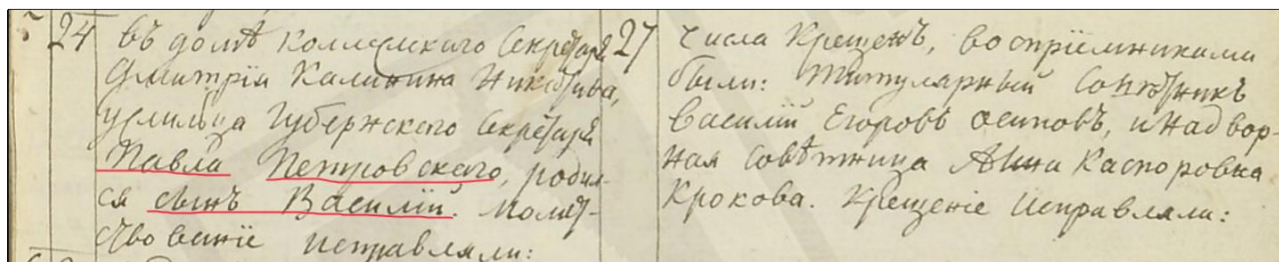 24 въ домѣ коллежскаго Секретаря
Дмитрія Калинина Никитина,
Губернскаго Секретаря
Павла Петровскаго, родил-
ся сынъ Василій. Молит-
ствованіе исправляли:
27 числа крещенъ, воспріемниками
были: титулярный Совѣтникъ
Василій Егоровъ Осиповъ, и надвор-
ная совѣтница Анна Каспоровна
Крокова. Крещеніе исправляли: